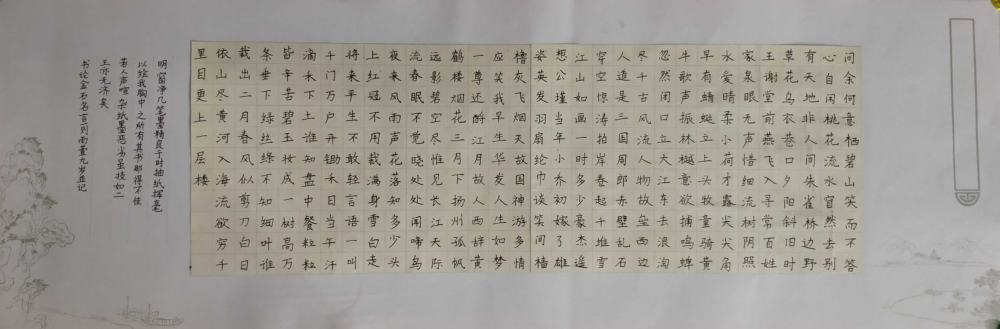 问余何意栖碧山笑而不答
心自闲桃花流水窅然去别
有天地非人间朱雀桥边野
草花乌衣巷口夕阳斜旧时
王谢堂前燕飞入寻常百姓
家泉眼无声惜细流树阴照
水爱晴柔小荷才露尖尖角
早有蜻蜓立上头牧童骑黄
牛歌声振林樾意欲捕鸣蝉
忽然闭口立大江东去浪淘
尽千古风流人物故垒西边
人道是三国周郎赤壁乱石
穿空惊涛拍岸卷起千堆雪
江山如画一时多少豪杰遥
想公瑾当年小乔初嫁了雄
姿英发羽扇纶巾谈笑间樯
橹灰飞烟灭故国神游多情
应笑我早生华发人生如梦
一尊还酹江月故人西辞黄
鹤楼烟花三月下扬州孤帆
远影碧空尽惟见长江天际
流春眠不觉晓处处闻啼鸟
夜来风雨声花落知多少头
上红冠不用裁满身雪白走
将来平生不敢轻言语一叫
千门万户开锄禾日当午汗
滴禾下土谁知盘中餐粒粒
皆辛苦碧玉妆成一树高万
条垂下绿丝绦不知细叶谁
裁出二月春风似剪刀白日
依山尽黄河入海流欲穷千
里目更上一层楼
明窗净几笔墨精良于时抽纸挥毫
以绘我胸中之所有其书那得不佳
若人声喧杂纸墨恶劣虽技如二
王亦无济矣
书论金石名言则雨萱九岁并记